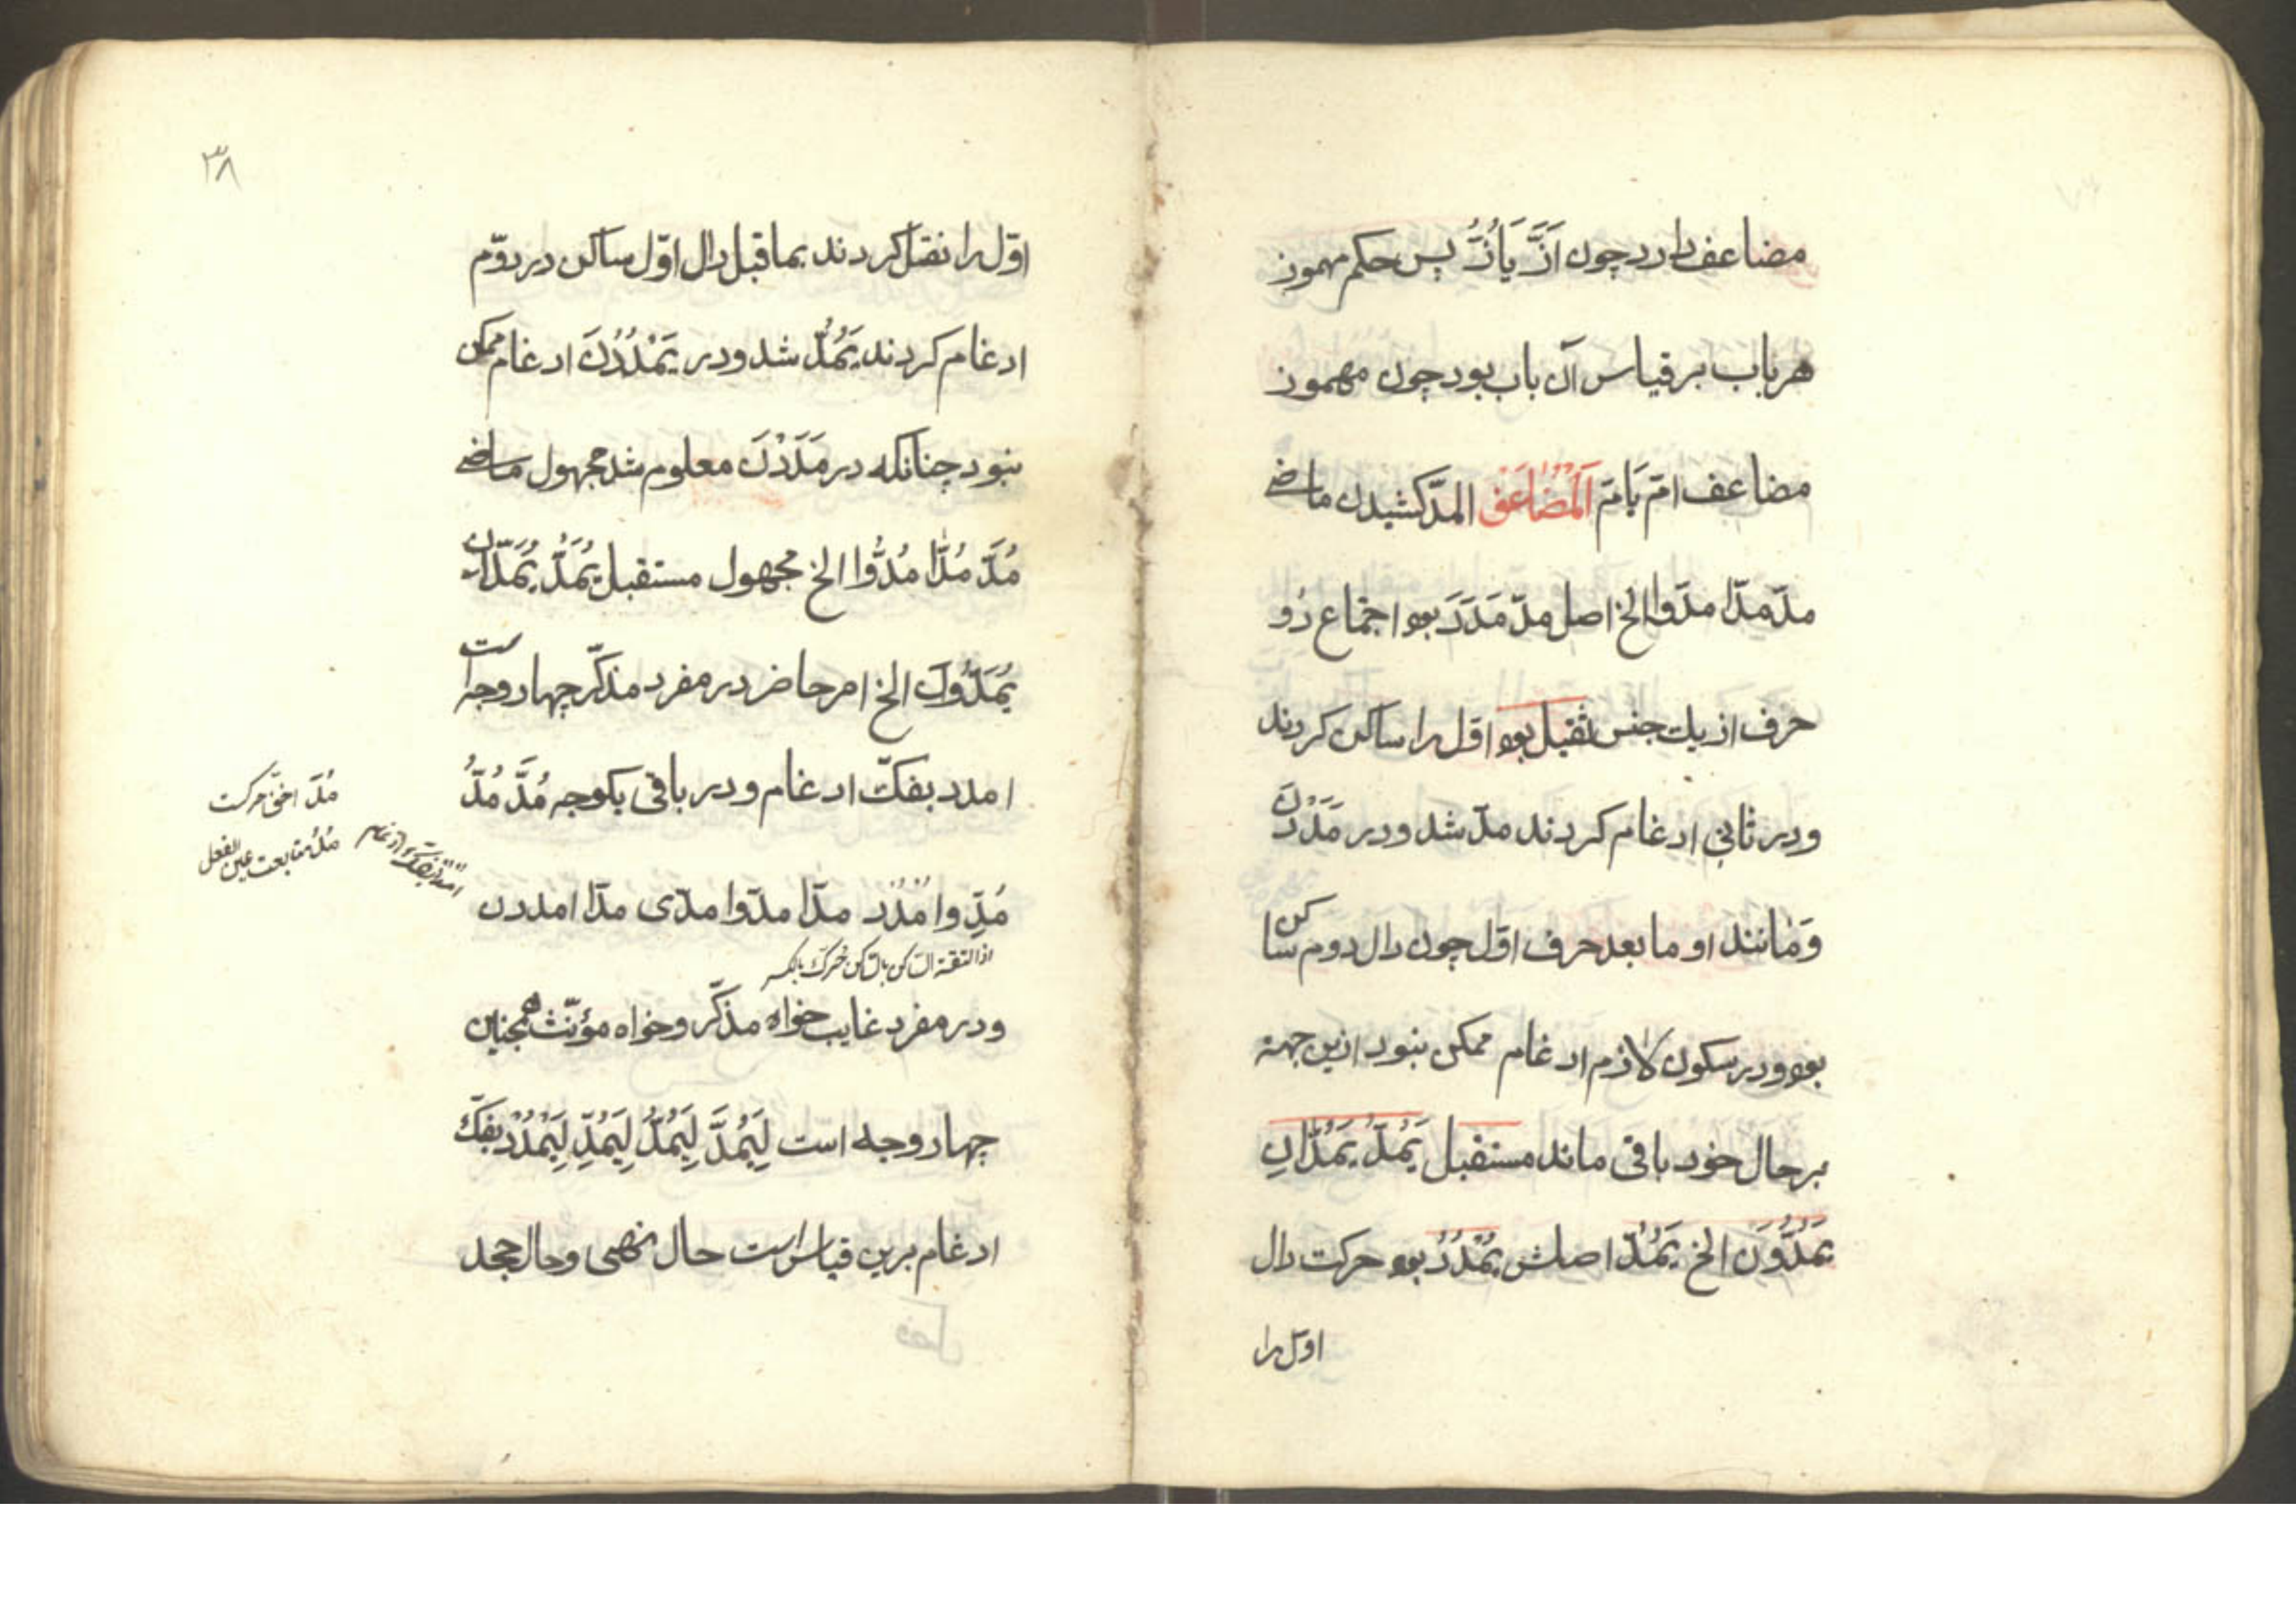 مضاعف دارد چون اَزَّ یَأُزُّ پس حکم مهموز
هر باب بر قیاس آن باب بود چون مهموز
مضاعف امّ یَامّ اَلْمُضَاعَفْ المدّ کشیدن ماضی
مدّ مدّا مدّوا الخ اصل مدّ مَدَدَ بود اجتماع دو
حرف از یک جنس ثقیل بود اوّل را ساکن کردند
و در ثانی ادغام کردند مدّ شد و در مَدَدْنَ
وَمٰانند او ما بعد حرف اوّل چون دال دوم ساکن
بود و در سکون لازم ادغام ممکن نبود ازین جهة
بر حال خود باقی ماند مستقبل یَمُدُّ یَمُدّٰانِ
یَمُدُّونَ الخ یَمُدّ اصلش یَمْدُدُ بود حرکت دال
اوّل را
۳۸
اوّل را نقل کردند بما قبل دال اوّل ساکن در دوّم
ادغام کردند یَمُدُّ شد و در یَمْدُدْنَ ادغام ممکن
نبود چنانکه در مَدَدْنَ معلوم شد مجهول ماضی
مُدَّ مُدّٰا مُدُّوا الخ مجهول مستقبل یُمَدُّ یُمَدّٰانِ
یُمَدُّونَ الخ امر حاضر در مفرد مذکّر چهار وجه است
امدد بفکّ ادغام و در باقی یکوجه مُدَّ مُدُّ
مُدِّ و اُمْدُدْ مدّا مدّوا مدّی مدّا امددن
اذا التقة الساکن بالساکن حُرّک بالکسر
و در مفرد غایب خواه مذکّر و خواه مؤنّث همچنین
چهار وجه است لِیَمُدَّ لِیَمُدُّ لِیَمُدِّ لِیَمْدُدْ بفکّ
ادغام برین قیاس است حال نهی و حال جحد
مُدَّ اخفّ حرکت
مُدُّ متابعت عین الفعل
امدد بفکّ ادغام